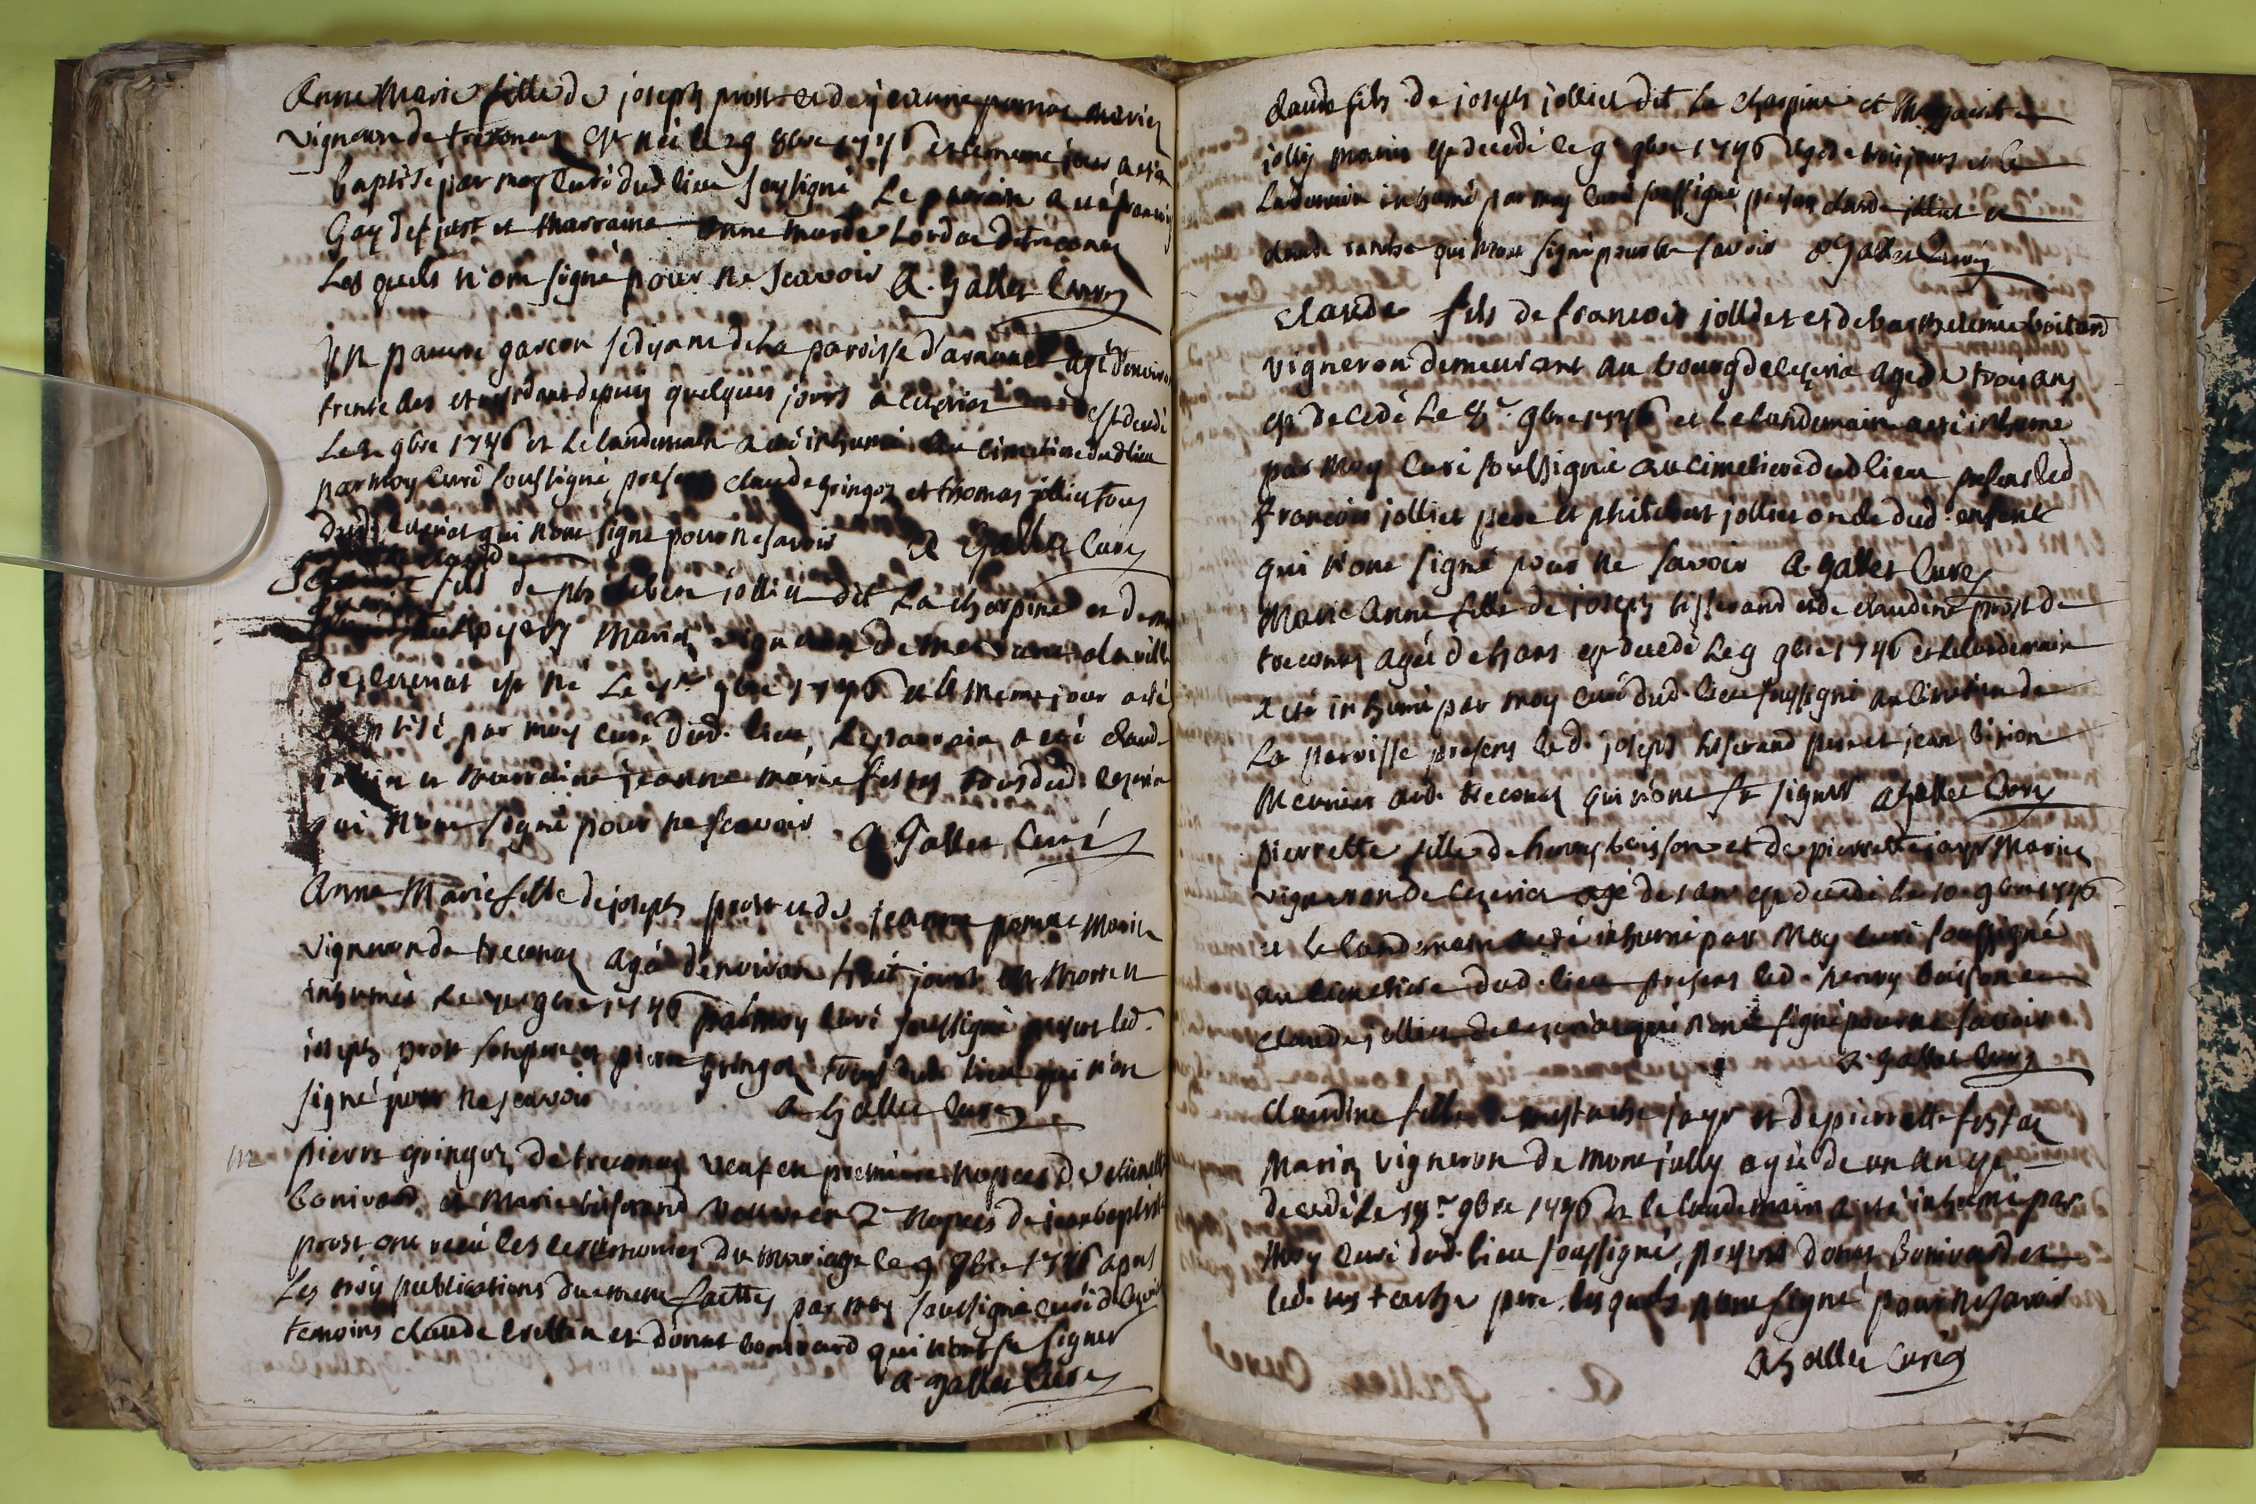 Anne Marie fille de joseph prost et de jeanne pernat mariez
vigneron de treconas est née le 29 8bre 1746 et le meme jour a été
baptisé par moy curé dud lieu soussigné Le parrain a été francois
Gay de st just et marraine anne marie de treconas
Lesquels n'ont signé pour ne scavoir A. Gallet Curé
Un pauvre garcon se disant de la paroisse d'arnans agé d'environ
trente ans et depuis quelques jours a ceyzeriat est decedé
Le 2 9bre 1746 et le landemain a été inhumé au cimetiere dud lieu
par moy curé soussigné presens claude gringoz et thomas jolliet tous
dud ceyzeriat qui n'ont signé pour ne savoir A Gallet Curé
fils de philibert jolliet dit La charpine et de
mariez vigneron demeurant a la ville
de ceyzeriat est né Le 9bre 1746 et le meme jour a été
baptisé par moy curé dud. lieu, le parrain a été claude
et marraine jeanne marie tous dud. ceyzeriat
qui n'ont signé pour ne scavoir A Gallet Curé
Anne Marie fille de joseph prost et de jeanne pernat mariez
vigneron de treconas agée d'environ huit jours est morte et
inhumée Le 9bre 1746 par moy curé soussigné presens led.
joseph prost son pere et pierre gringoz tous dud. lieu qui n'ont
signé pour ne scavoir A Gallet Curé
m pierre gringoz de treconas veuf en premiere nopces d'
bonivard et Marie tisserand veuve en 2e nopces de jean baptiste
prost ont recu les ceremonies du mariage le 9 9bre 1746 apres
Les trois publications duement faittes par moy soussigné curé de
temoins claude et donat bonivard qui n'ont su signer
A Gallet Curé
claude fils de joseph jolliet dit La charpine et Margueritte
jolly mariez est decedé le 9e 9bre 1746 agé de trois jours et le
Landemain inhumé par moy curé soussigné presens claude jolliet et
claude qui n'ont signé pour ne savoir A Gallet Curé
claude fils de francois jolliet et de barthelemie boitard
vigneron demeurant au bourg de ceyzeria agé de trois ans
est decedé Le 8e 9bre 1746 et Le landemain a été inhumé
par moy curé soussigné au cimetiere dud lieu presens led
francois jolliet pere et philibert jolliet oncle dud. enfent
qui n'ont signé pour ne savoir A Gallet Curé
Marie Anne fille de joseph tisserand et de claudine prost de
treconas agée de ans est decedé Le 9 9bre 1746 et le landemain
a été inhumé par moy curé dud. lieu soussigné au cimetiere de
La paroisse presens led. joseph tisserand pere et jean
meunier aud. treconas qui n'ont su signer A Gallet Curé
pierrette fille de henry buisson et de pierrette jayr Mariez
vigneron de ceyzeriat agé de 1 an est decedé Le 10e 9bre 1746
et Le landemain a été inhumé par moy curé soussigné
au cimetiere dud. lieu presens led. henry buisson et
claude jolliet de ceyzeriat qui n'ont signé pour ne savoir
A Gallet Curé
Claudine fille de eustache jayr et de pierrette
Mariez vigneron de mont july agée de un an est
decedé Le 9bre 1746 et le landemain a été inhumé par
moy curé dud. lieu soussigné, presens donat Bonivard et
led. eustache pere lesquels n'ont signé pour ne savoir
A Gallet Curé